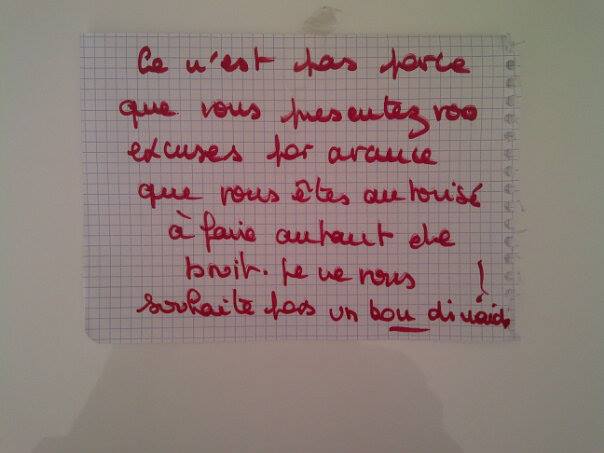 Ce n'est pas parce
que vous presentez vos
excuses par avance
que vous êtes autorisé
à faire autant de
bruit. Je ne vous
souhaite pas un bon !